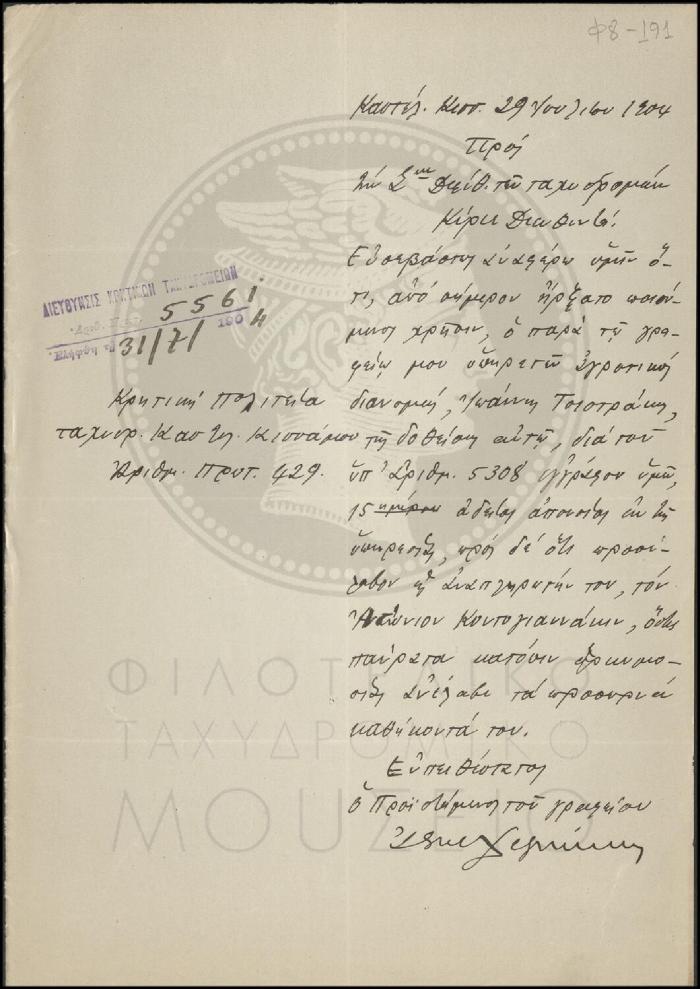 Φ8-191
Καστέλ. Κισσ. 29 Ἰουλίου 1904
Πρὸς
τὴν Σην Διεύθ. τῶν ταχυδρομείων
Κύριε Διευθυντά!
Εὐσεβάστως ἀναφέρω ὑμῖν ὅ-
τι, ἀπὸ σήμερον ἤρξατο ποιού-
μενος χρῆσιν, ὁ παρὰ τῷ γρα-
φείῳ μου ὑπηρετῶν ἀγροτικὸς
διανομεὺς, Ἰωάννης Τσιστράκης,
τῆς δοθείσης αὐτῷ, διὰ τοῦ
ὑπ' ἀριθμ. 5308 ἐγγράφου ὑμῶν,
15 ἀδείας ἀπουσίας ἐκ τῆς
ὑπηρεσίας, πρὸς δὲ ὅτι προσέ-
λαβον ὡς ἀναπληρωτήν του, τὸν
Ἀντώνιον Κοντογιαννάκην, ὅστις
κατόπιν ὁρκωμο-
σίας ἀνέλαβε τὰ προσωρινὰ
καθήκοντά του.
Εὐπειθέστατος
ὁ Προϊστάμενος τοῦ γραφείου
ΔΙΕΥΘΥΝΣΙΣ ΚΡΗΤΙΚΩΝ ΤΑΧΥΔΡΟΜΕΙΩΝ
5561
31/7/ 1904
Κρητικὴ Πολιτεία
ταχυδρ. Καστέλ. Κισσάμου
Ἀριθμ. Πρωτ. 429.
ΦΙΛΟΤΕΛΙΚΟ
ΤΑΧΥΔΡΟΜΙΚΟ
ΜΟΥΣΕΙΟ